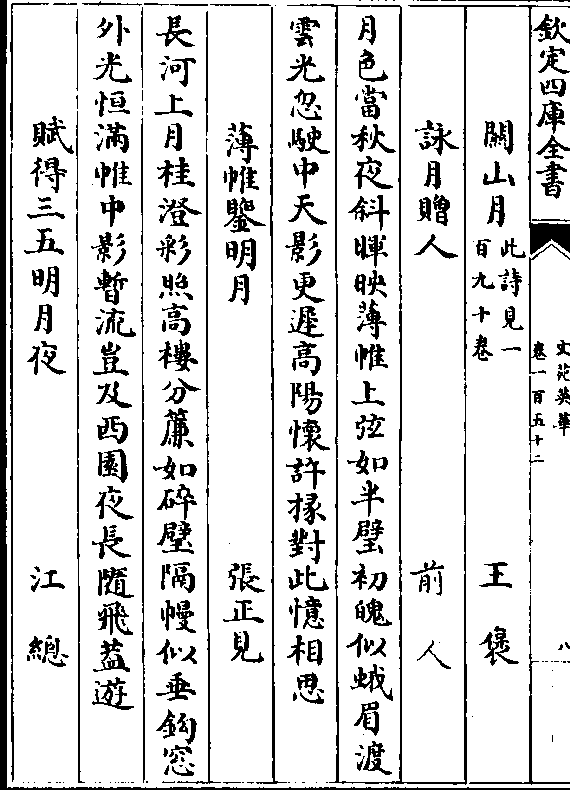 欽定四庫全書
文苑英華
卷一百五十二
八
關山月 此詩見一
百九十卷 王褒
詠月贈人 前人
月色當秋夜斜暉映薄帷上弦如半璧初魄似蛾眉渡
雲光忽駛中天影更遲高陽懷許掾對此憶相思
薄帷鑒明月 張正見
長河上月桂澄彩照高樓分簾如碎璧隔幔似垂鈎窓
外光恒滿帷中影暫流豈及西園夜長隨飛葢遊
賦得三五明月夜 江總